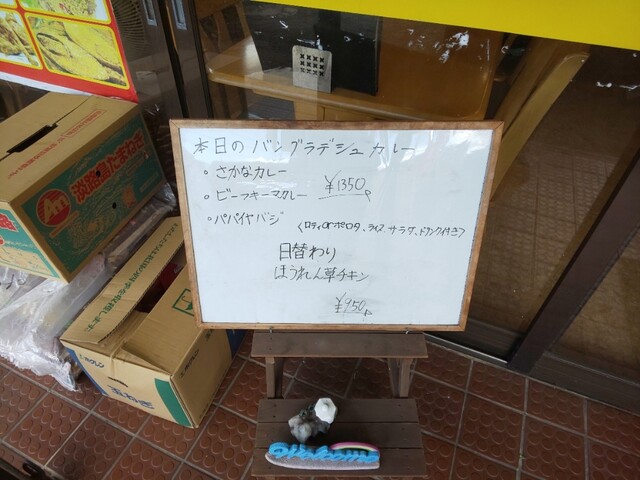 本日のバングラデシュカレー
・さかなカレー
・ビーフキーマカレー ¥1350
・パパイヤバジ
〈ロティorポロタ、ライス サラダ、ドリンク付き〉
日替わり
ほうれん草チキン
¥950
淡路島たまねぎ
Welcome